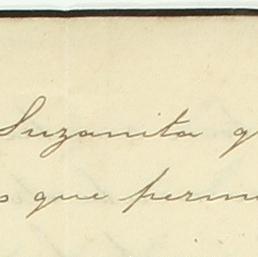 Suzanita q
s que perm